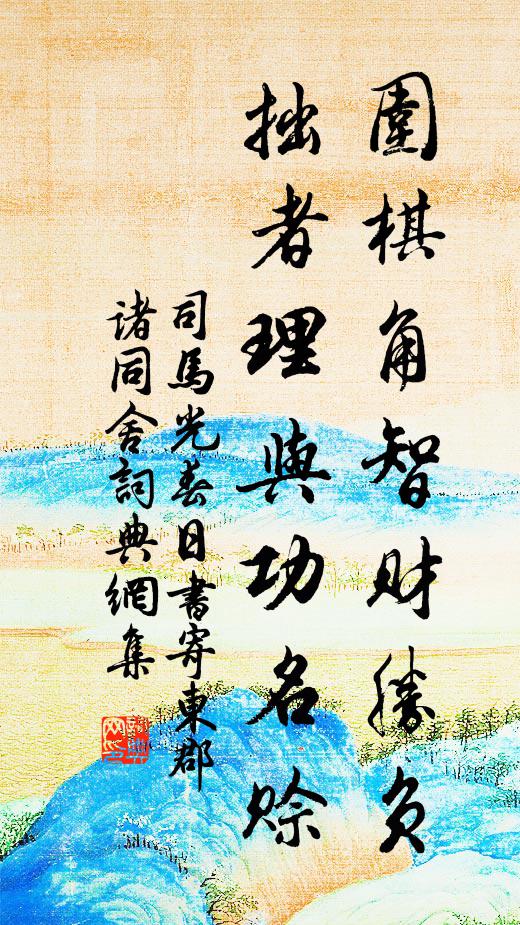 圍棋角智財勝負
拙者理與功名賒
司馬光春日書寄東郡
諸同舍詞典網集